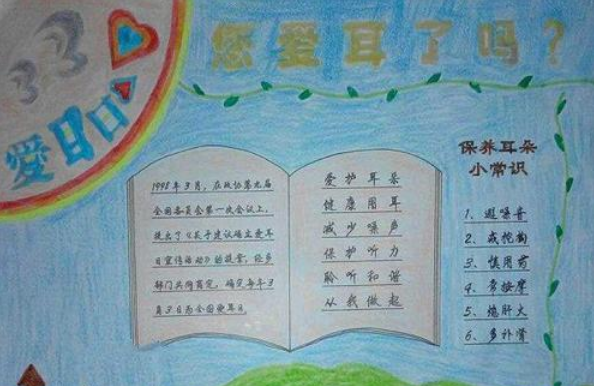 3.3
爱耳日
您爱耳了吗？
1998年3月，在政协第九届
全国委员会第一次会议上，
提出了《关于建议确立爱耳
日宣传活动》的提案，经多
部门共同商定，确定每年3
月3日为全国爱耳日。
爱护耳朵
健康用耳
减少噪声
保护听力
聆听和谐
从我做起
保养耳朵
小常识
1、避噪音
2、戒挖掏
3、慎用药
4、常按摩
5、熄肝火
6、多补肾